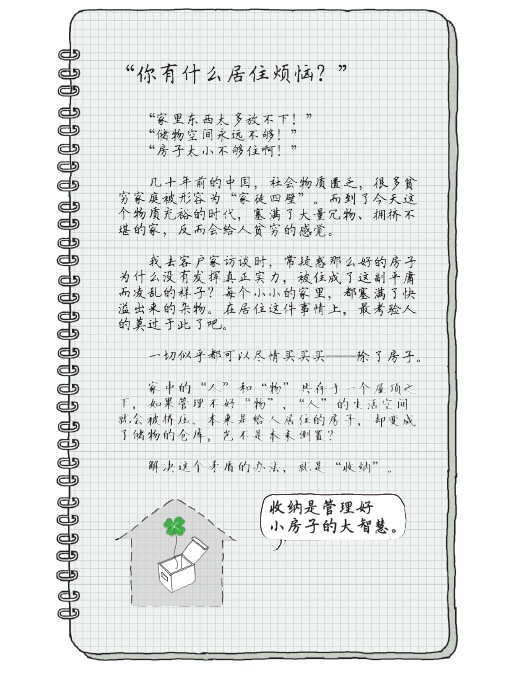 “你有什么居住烦恼？”
“家里东西太多放不下！”
“储物空间永远不够！”
“房子太小不够住啊！”
几十年前的中国，社会物质匮乏，很多贫
穷家庭被形容为“家徒四壁”。而到了今天这
个物质充裕的时代，塞满了大量冗物、拥挤不
堪的家，反而会给人贫穷的感觉。
我去客户家访谈时，常疑惑那么好的房子
为什么没有发挥真正实力，被住成了这副平庸
而凌乱的样子？每个小小的家里，都塞满了快
溢出来的杂物。在居住这件事情上，最考验人
的莫过于此了吧。
一切似乎都可以尽情买买买——除了房子。
家中的“人”和“物”共存于一个屋顶之
下，如果管理不好“物”，“人”的生活空间
就会被挤压。本来是给人居住的房子，却变成
了储物的仓库，岂不是本末倒置？
解决这个矛盾的办法，就是“收纳”。
收纳是管理好
小房子的大智慧。